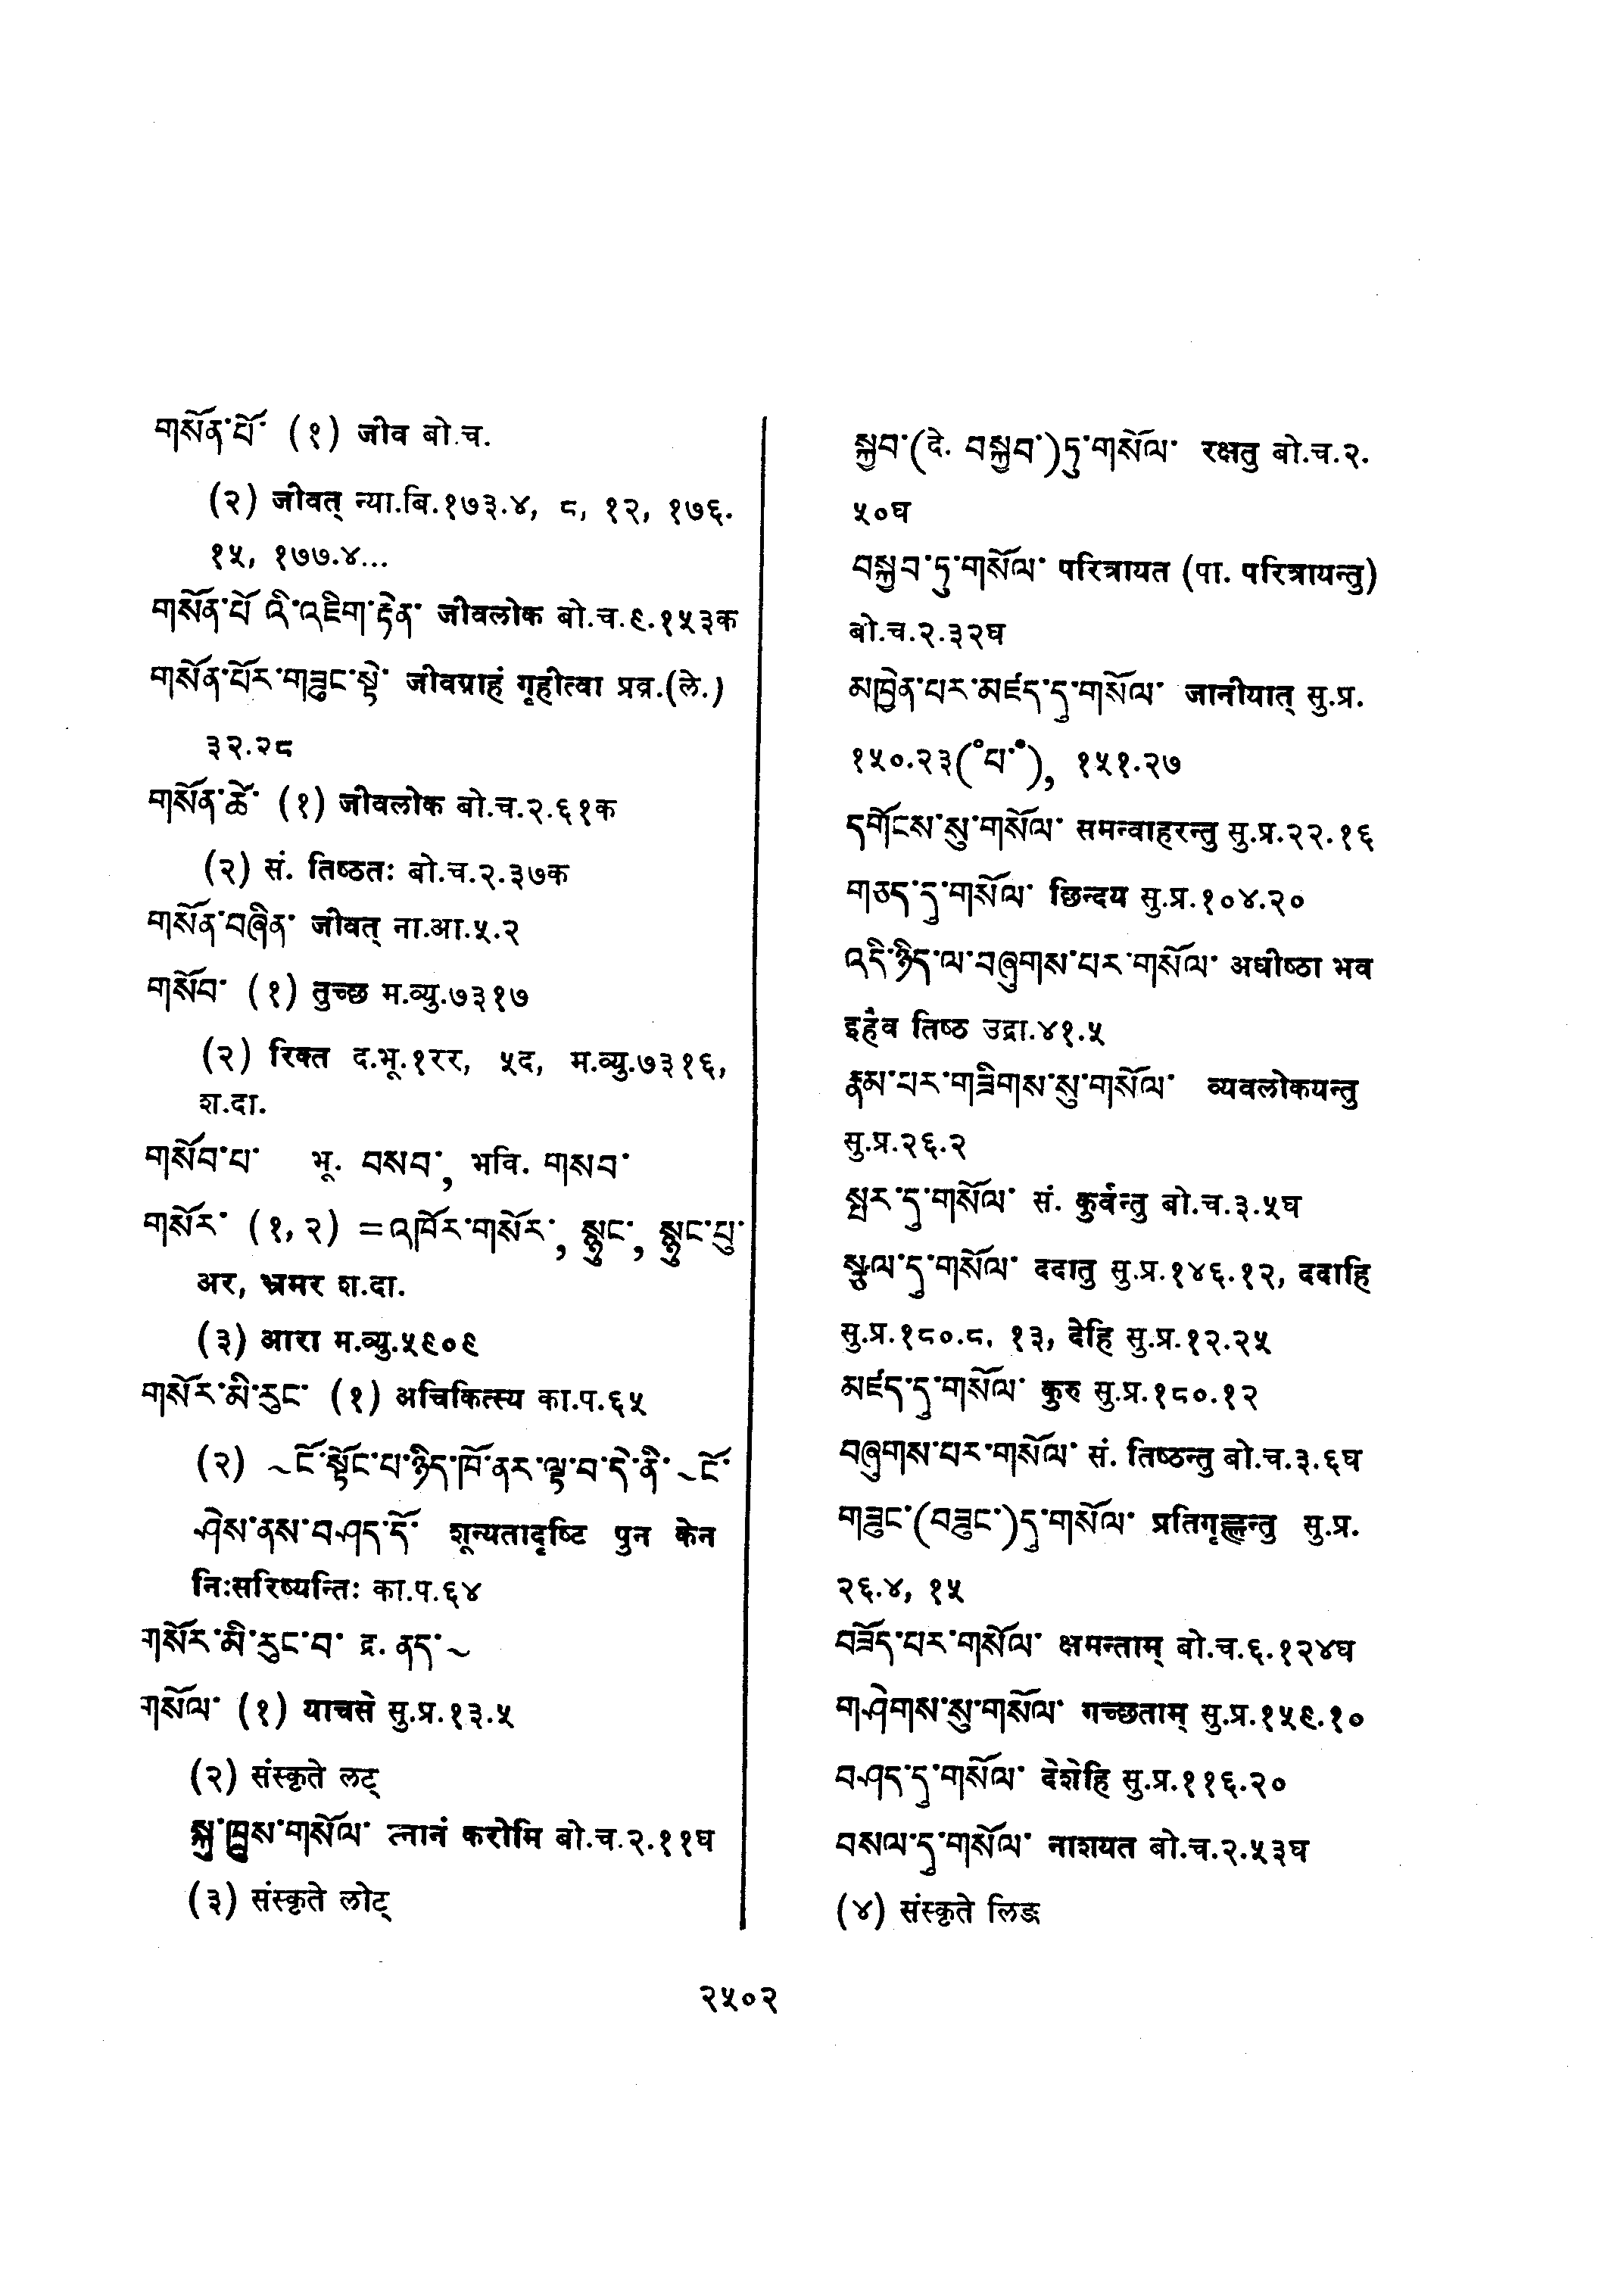 གསོན་པོ་ (१) जीव बो.च.
(२) जीवत् न्या.बि.१७३.४, ८, १२, १७६.
१५, १७७.४...
གསོན་པོ འི་འཇིག་རྟེན་ जीवलोक बो.च.९.१५३क
གསོན་པོར་གཟུང་སྟེ་ जीवग्राहं गृहीत्वा प्रव्र.(ले.)
३२.२८
གསོན་ཚེ་ (१) जीवलोक बो.च.२.६१क
(२) सं. तिष्ठतः बो.च.२.३७क
གསོན་བཞིན་ जीवत् ना.आ.५.२
གསོབ་ (१) तुच्छ म.व्यु.७३१७
(२) रिक्त द.भू.१रर, ५द, म.व्यु.७३१६,
श.दा.
གསོབ་པ་ भू. བསབ་, भवि. གསབ་
གསོར་ (१, २) =འཁོར་གསོར་, སྙུང་, སྙུང་བུ་
अर, भ्रमर श.दा.
(३) आरा म.व्यु.५९०९
གསོར་མི་རུང་ (१) अचिकित्स्य का.प.६५
(२) ~ངོ་སྟོང་པ་ཉིད་ཁོ་ནར་ལྟ་བ་དེ་ནི་~ངོ་
ཤེས་ནས་བཤད་དོ་ शून्यतादृष्टि पुन केन
निःसरिष्यन्तिः का.प.६४
གསོར་མི་རུང་བ་ द्र. ནད་~
གསོལ་ (१) याचसे सु.प्र.१३.५
(२) संस्कृते लट्
སྐུ་ཁྲུས་གསོལ་ त्नानं करोमि बो.च.२.११घ
(३) संस्कृते लोट्
སྐྱབ་(दे. བསྐྱབ་)དུ་གསོལ་ रक्षतु बो.च.२.
५०घ
བསྐྱབ་དུ་གསོལ་ परित्रायत (पा. परित्रायन्तु)
बो.च.२.३२घ
མཁྱེན་པར་མཛད་དུ་གསོལ་ जानीयात् सु.प्र.
१५०.२३(°པ་°), १५१.२७
དགོངས་སུ་གསོལ་ समन्वाहरन्तु सु.प्र.२२.१६
གཅད་དུ་གསོལ་ छिन्दय सु.प्र.१०४.२०
འདི་ཉིད་ལ་བཞུགས་པར་གསོལ་ अधीष्ठा भव
इहैव तिष्ठ उद्रा.४१.५
རྣམ་པར་གཟིགས་སུ་གསོལ་ व्यवलोकयन्तु
सु.प्र.२६.२
སྤར་དུ་གསོལ་ सं. कुर्वन्तु बो.च.३.५घ
སྩལ་དུ་གསོལ་ ददातु सु.प्र.१४६.१२, ददाहि
सु.प्र.१८०.८, १३, देहि सु.प्र.१२.२५
མཛད་དུ་གསོལ་ कुरु सु.प्र.१८०.१२
བཞུགས་པར་གསོལ་ सं. तिष्ठन्तु बो.च.३.६घ
གཟུང་(བཟུང་)དུ་གསོལ་ प्रतिगृह्णन्तु सु.प्र.
२६.४, १५
བཟོད་པར་གསོལ་ क्षमन्ताम् बो.च.६.१२४घ
གཤེགས་སུ་གསོལ་ गच्छताम् सु.प्र.१५९.१०
བཤད་དུ་གསོལ་ देशेहि सु.प्र.११६.२०
བསལ་དུ་གསོལ་ नाशयत बो.च.२.५३घ
(४) संस्कृते लिङ्
२५०२